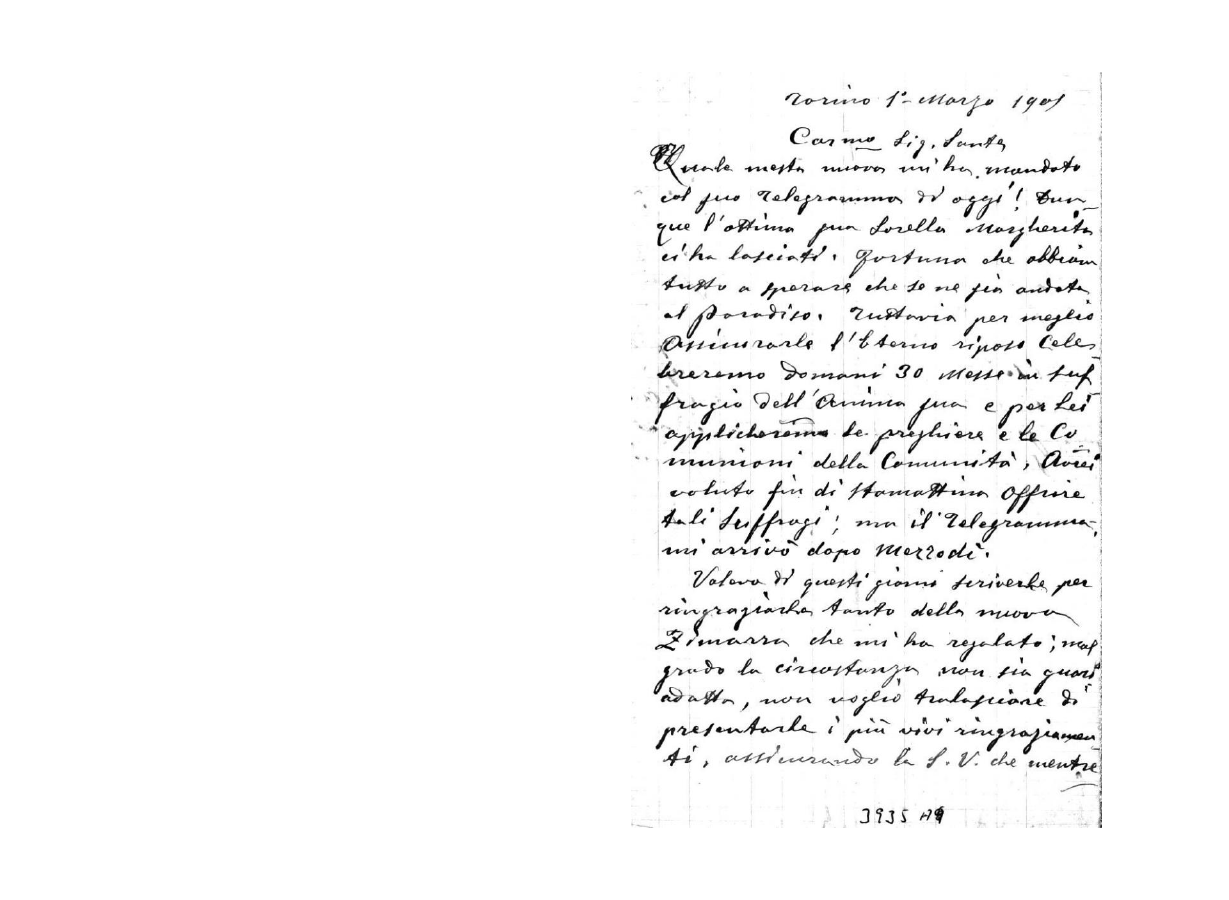 Torino 1°- Marzo 1901
Carma Sig. Santa
Quale mesta nuova mi ha mandato
col suo Telegramma di oggi! Dun-
que l'ottima sua Sorella Margherita
ci ha lasciati. Fortuna che abbiam
tutto a sperare che se ne sia andata
al Paradiso. Tuttavia per meglio
assicurarle l'Eterno riposo Cele-
breremo domani 30 Messe in suf
fragio dell'Anima sua e per Lei
applicheremo le preghiere e le Co
munioni della Comunità. Avrei
voluto fin di stamattina offrire
tali Suffragi; ma il Telegramma
mi arrivò dopo Mezzodì.
Voleva di questi giorni scriverle per
ringraziarla tanto della nuova
Zimarra che mi ha regalato; mal
grado la circostanza non sia guari
adatta, non voglio tralasciare di
presentarle i più vivi ringraziamen
ti, assicurando la S. V. che mentre
3935 A9